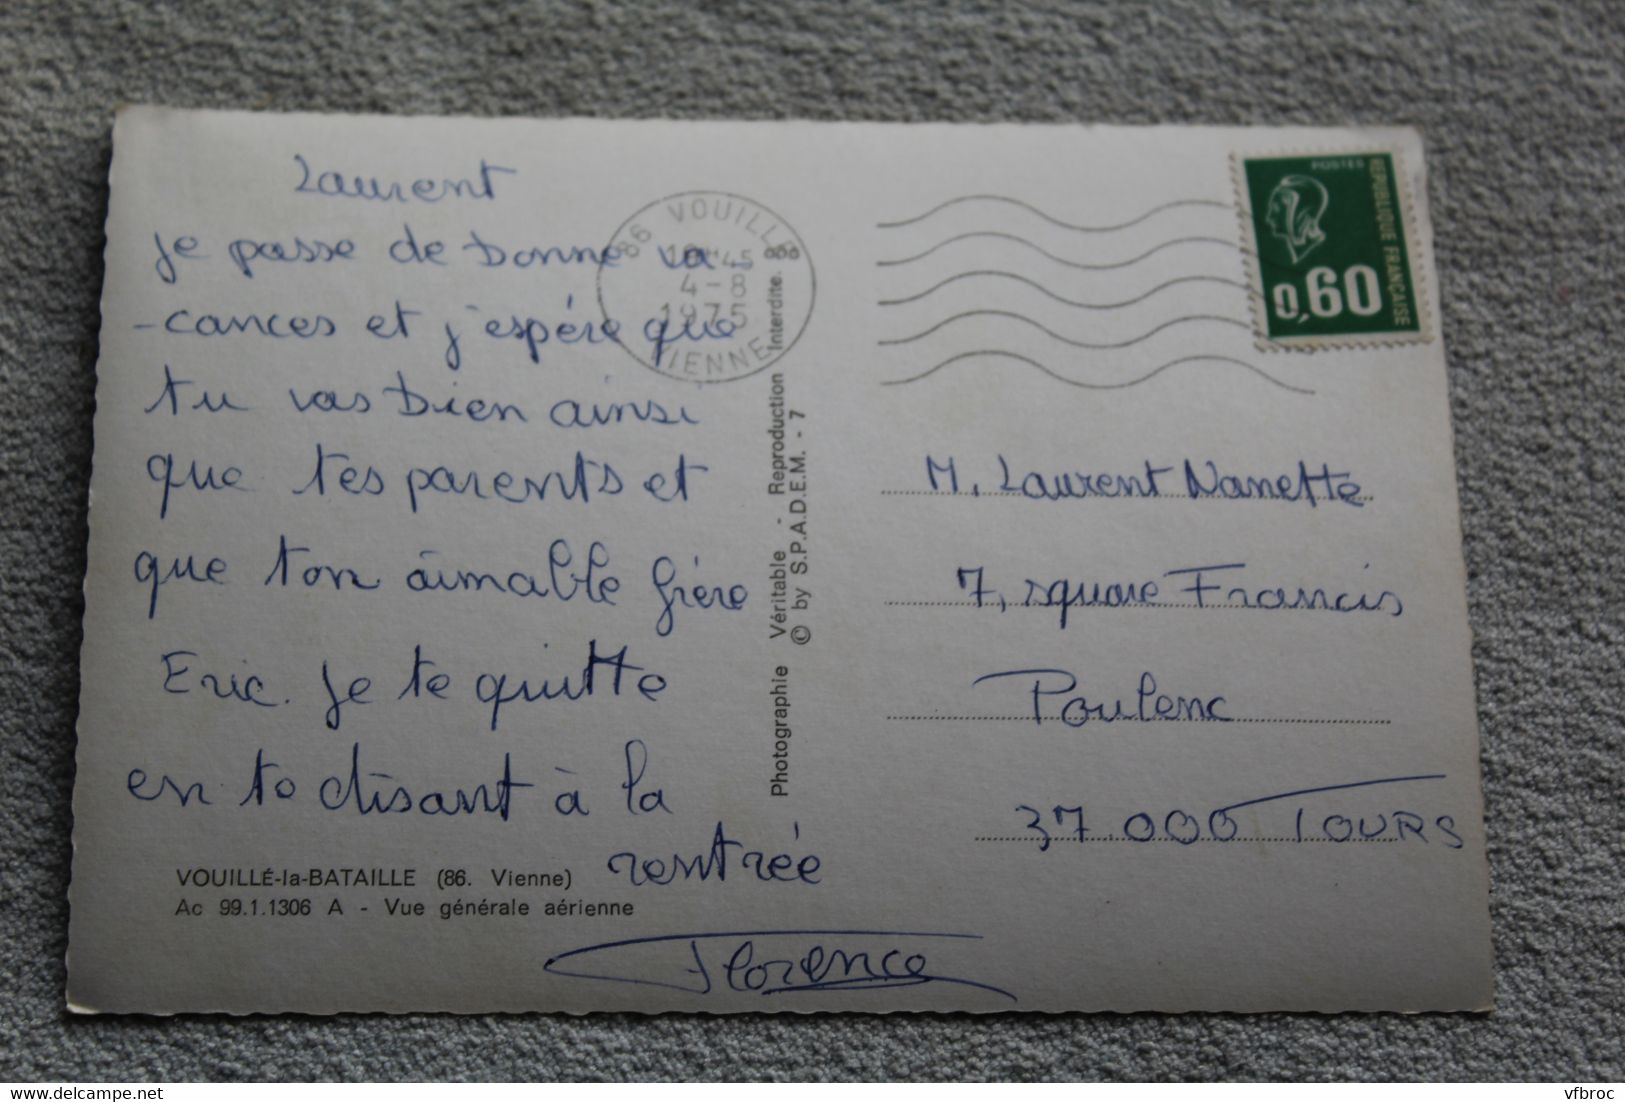 Laurent
Je passe de bonne va-
-cances et j'espére que
tu vas bien ainsi
que tes parents et
que ton aimable frère
Eric. Je te quitte
en te disant à la
rentrée
Florence
VOUILLÉ-la-BATAILLE (86. Vienne)
Ac 99.1.1306 A - Vue générale aérienne
Photographie Véritable - Reproduction Interdite.
© by S.P.A.D.E.M. - 7
86 VOUILLE
4-8
1975
VIENNE
POSTES
REPUBLIQUE FRANÇAISE
0,60
M. Laurent Nanette
7, square Francis
Poulenc
37.000 TOURS
vfbroc